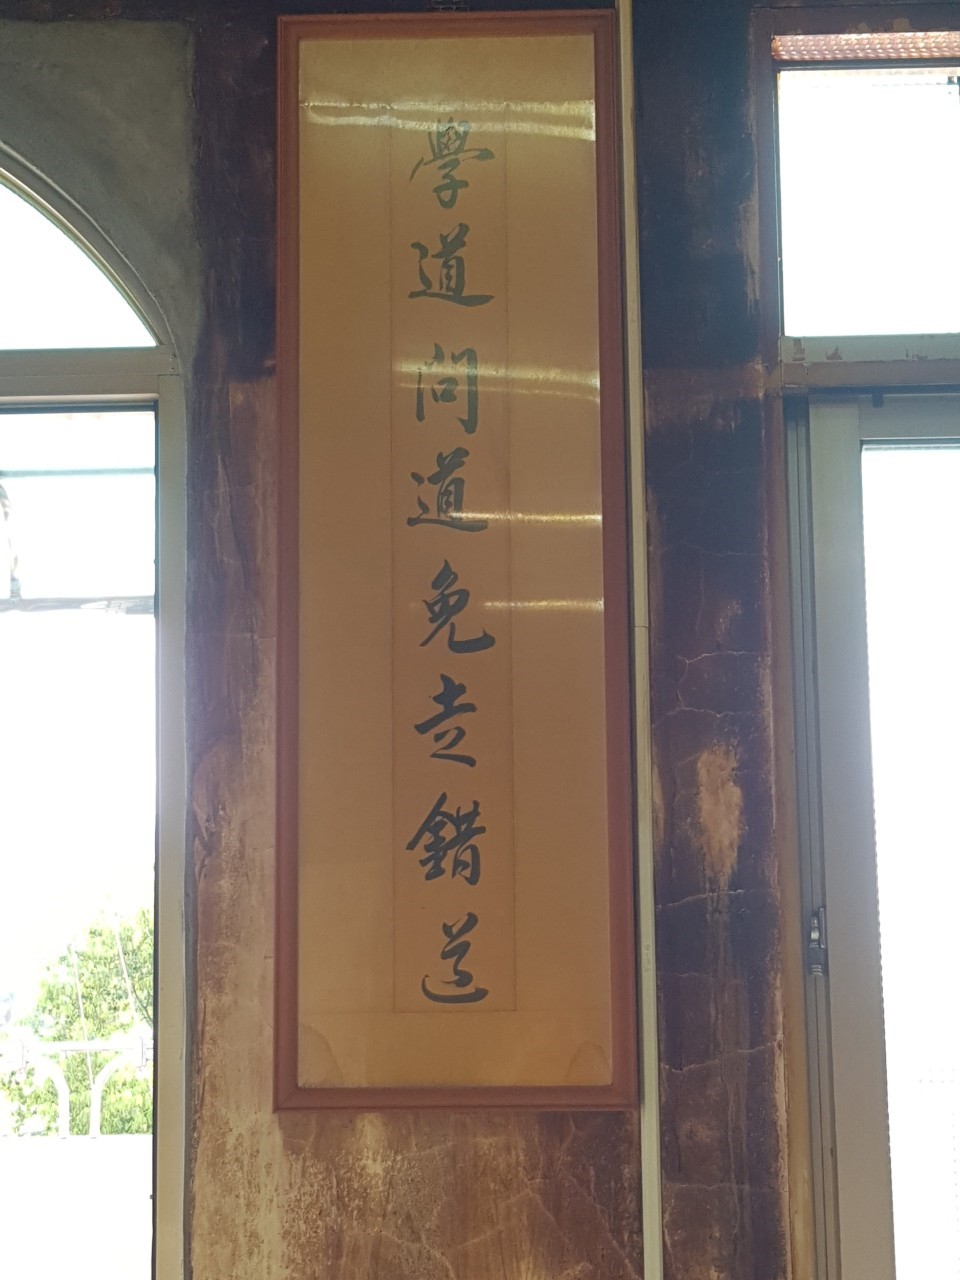 學道問道免走錯道